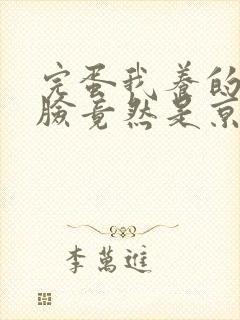 完蛋我养的
脸竟然是京
李萬進